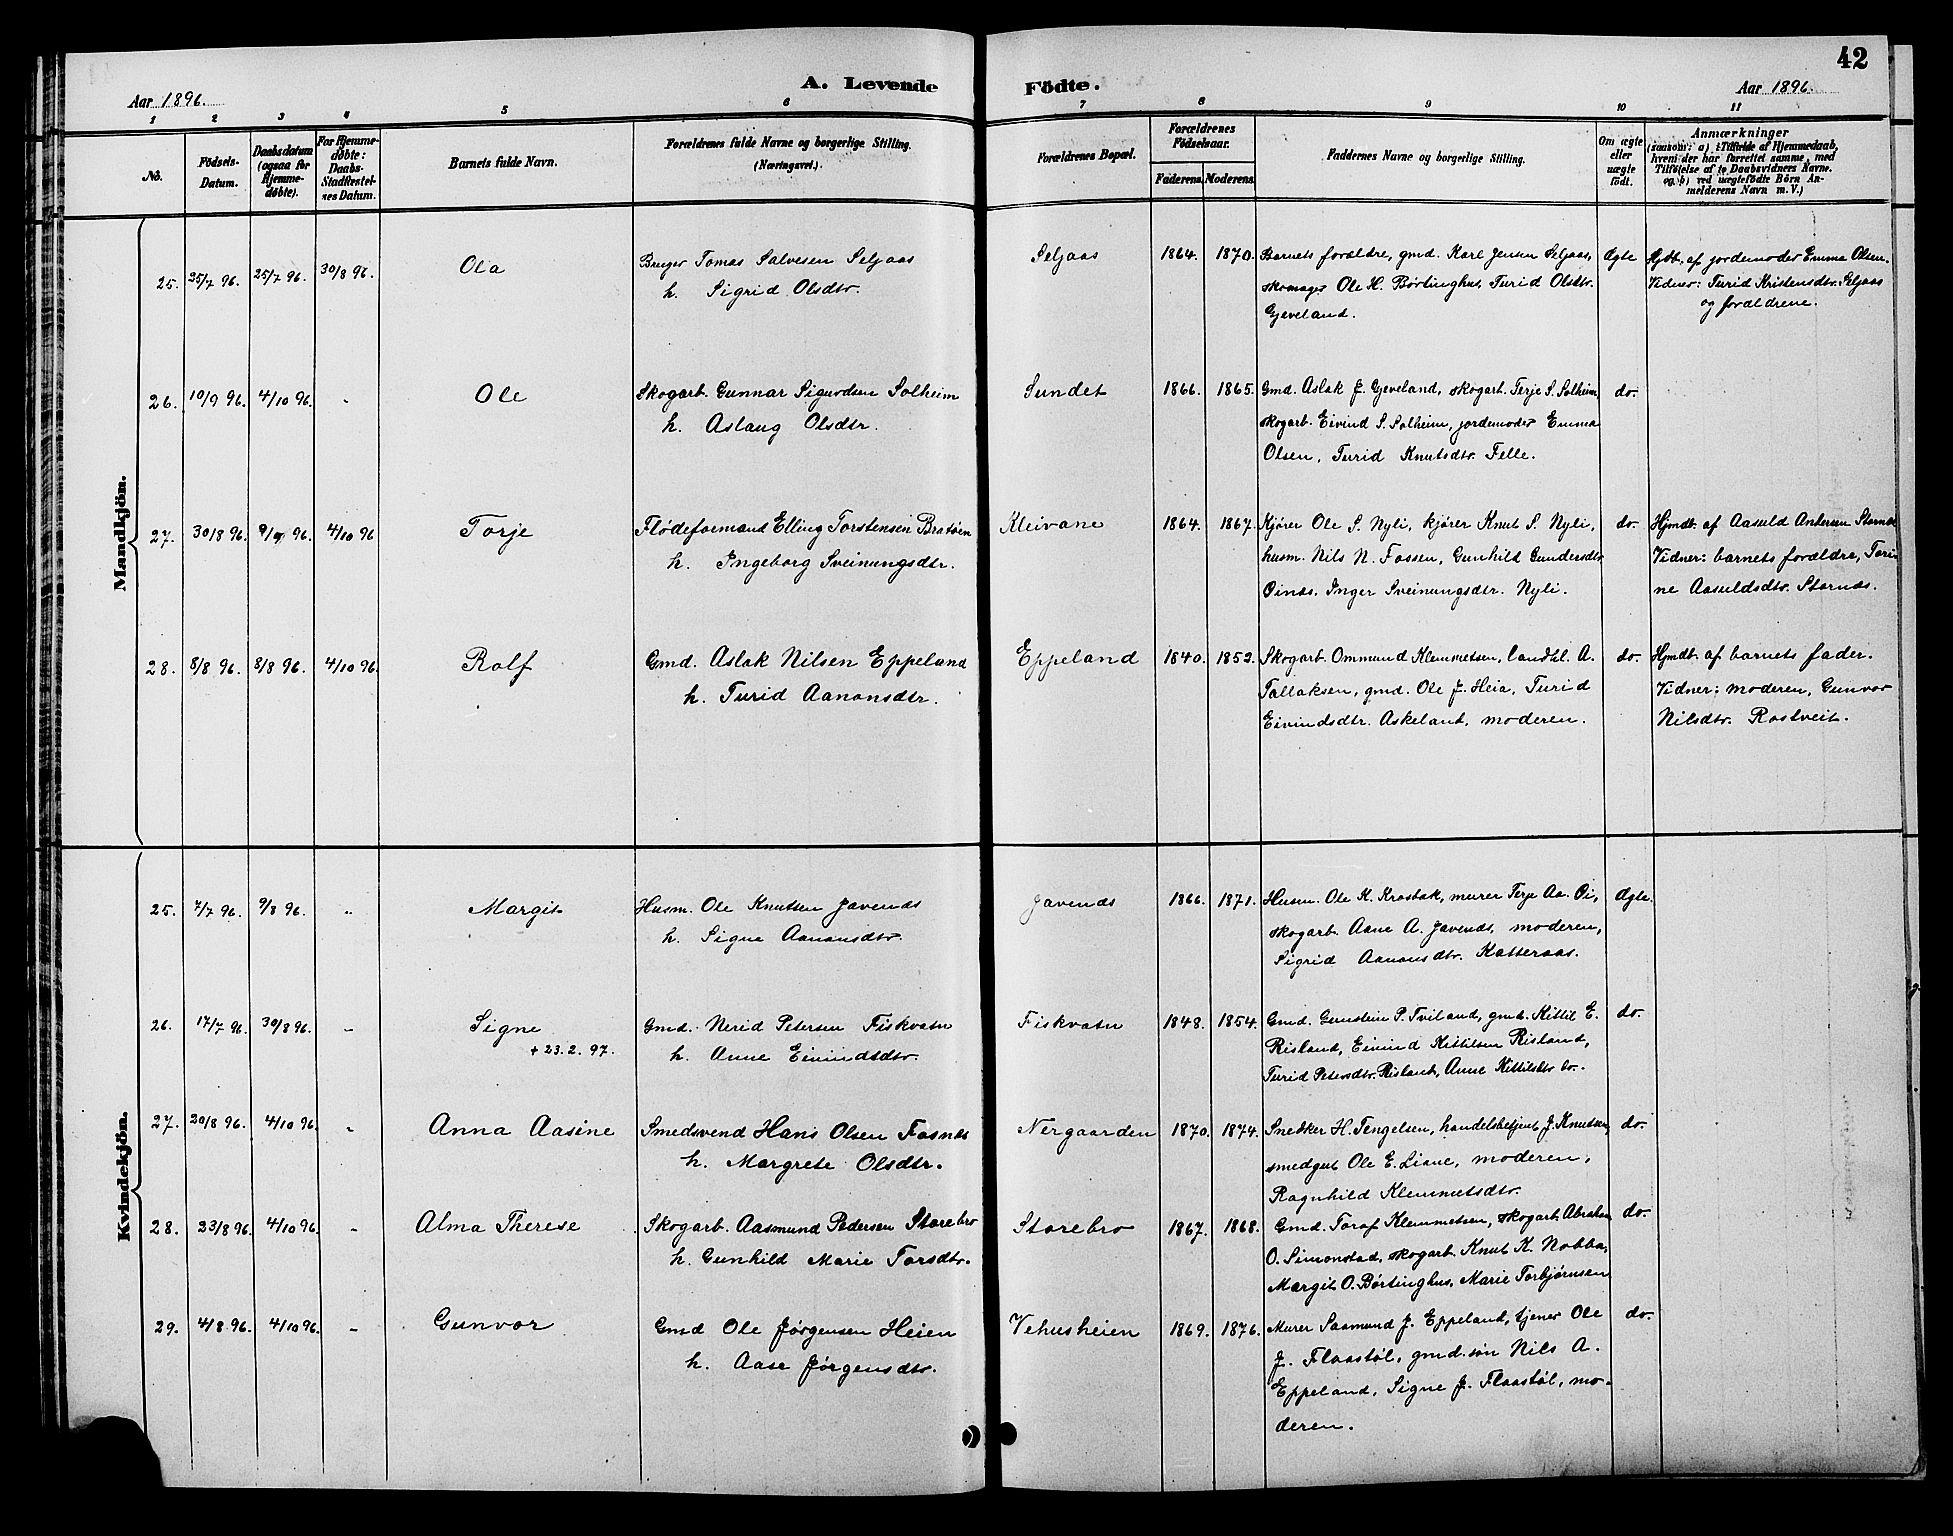 42
A. Levende Födte.
Aar 1896.
Aar 1896.
1 2 3 4 5 6 7 8 9 10 11
No.
Födsels-Datum.
Daabsdatum (ogsaa for Hjemme-døbte).
For Hjemme-døbte: Daabs-Stadfæstel-ses Datum.
Barnets fulde Navn.
Forældrenes fulde Navne og borgerlige Stilling. (Næringsvei.)
Forældrenes Bopæl.
Forældrenes Födselsaar.
Faderens. Moderens.
Faddernes Navne og borgerlige Stilling.
Om ægte eller uægte født.
Anmærkninger
(saasom: a) i Tilfælde af Hjemmedaab,
hvem der har forrettet samme, med
Tilføielse af to Daabsvidners Navne.
og b) ved uægtefødte Börn An-
melderens Navn m. V.)
Mandkjön.
25. 25/7 96. 25/7 96. 30/8 96. Ola Bruger Tomas Salvesen Seljaas Seljaas 1864. 1870. Barnets forældre, gmd. Karl Jensen Seljaas, Ægte Hjdt. af jordemoder Emma Olsen.
h. Sigrid Olsdtr. skomager Ole H. Börtinghus, Turid Olsdtr. Vidner: Turid Kristensdtr. Seljaas
Gjeveland. og forældrene.
26. 10/9 96. 4/10 96. - Ole Skogarb. Gunnar Sigurdsen Solheim Sundet 1866. 1865. Gmd. Aslak J. Gjeveland, skogarb. Terje S. Solheim, do.
h. Aslaug Olsdtr. skogarb. Eivind S. Solheim, jordemoder Emma
Olsen, Turid Knutsdtr. Felle.
27. 30/8 96. 9/9 96. 4/10 96 Torje Flødeformand Elling Torstensen Bratøen Kleivane 1864. 1867. Kjører Ole S. Nyli, kjører Knut S. Nyli, do. Hjmdt. af Aasuld Andersen Stornæs
h. Ingeborg Sveinungsdtr. husm. Nils N. Fossen, Gunhild Gundersdtr. Vidner: barnets forældre, Tori-
Oinæs, Inger Sveinungsdtr. Nyli. ne Aasuldsdtr. Stornæs.
28. 8/8 96. 8/8 96. 4/10 96. Rolf Gmd. Aslak Nilsen Eppeland Eppeland 1840. 1852. Skogarb. Ommund Klemmetsen, landhl. A. do. Hjmdt. af barnets fader.
h. Turid Aanonsdtr. Tallaksen, gmd. Ole J. Heia, Turid Vidner: moderen, Gunvor
Eivindsdtr. Askeland, moderen. Nilsdtr. Rostveit.
Kvindekjön.
25. 7/7 96. 9/8 96. " Margit Husm. Ole Knutsen Javends Javends 1866. 1871. Husm. Ole K. Krosbak, murer Terje Aa. Oi, Ægte.
h. Signe Aanonsdtr. skogarb. Aane A. Javends, moderen,
Sigrid Aanonsdtr. Katteraas.
26. 17/7 96. 30/8 96. - Signe Gmd. Nerid Petersen Fiskvatn Fiskvatn 1848. 1854. Gmd. Gunstein P. Tviland, gmd. Kittil E. do.
+ 23. 2. 97. h. Anne Eivindsdtr. Risland, Eivind Kittilsen Risland,
Turid Petersdtr. Risland, Anne Kittilsdtr do.
27. 20/8 96. 4/10 96. - Anna Aasine Smedsvend Hans Olsen Fosnæs Nergaarden 1870. 1874. Snedker H. Tengelsen, handelsbetjent J. Knutsen, do.
h. Margrete Olsdtr. smedgut Ole E. Liane, moderen,
Ragnhild Klemmetsdtr.
28. 23/8 96. 4/10 96. - Alma Therese Skogarb. Aasmund Pedersen Storebro Storebro 1867. 1868. Gmd. Toraf Klemmetsen, skogarb. Abraham do.
h. Gunhild Marie Torsdtr. O. Simonstad, skogarb. Knut K. Nobba,
Margit O. Börtinghus, Marie Torbjørnsen
29. 4/8 96. 4/10 96. - Gunvor Gmd Ole Jørgensen Heien Vehusheien 1869. 1876. Murer Saamund J. Eppeland, tjener Ole do.
h. Aase Jørgensdtr. J. Flaastøl, gmd. søn Nils A.
Eppeland, Signe J. Flaastøl, mo-
deren.